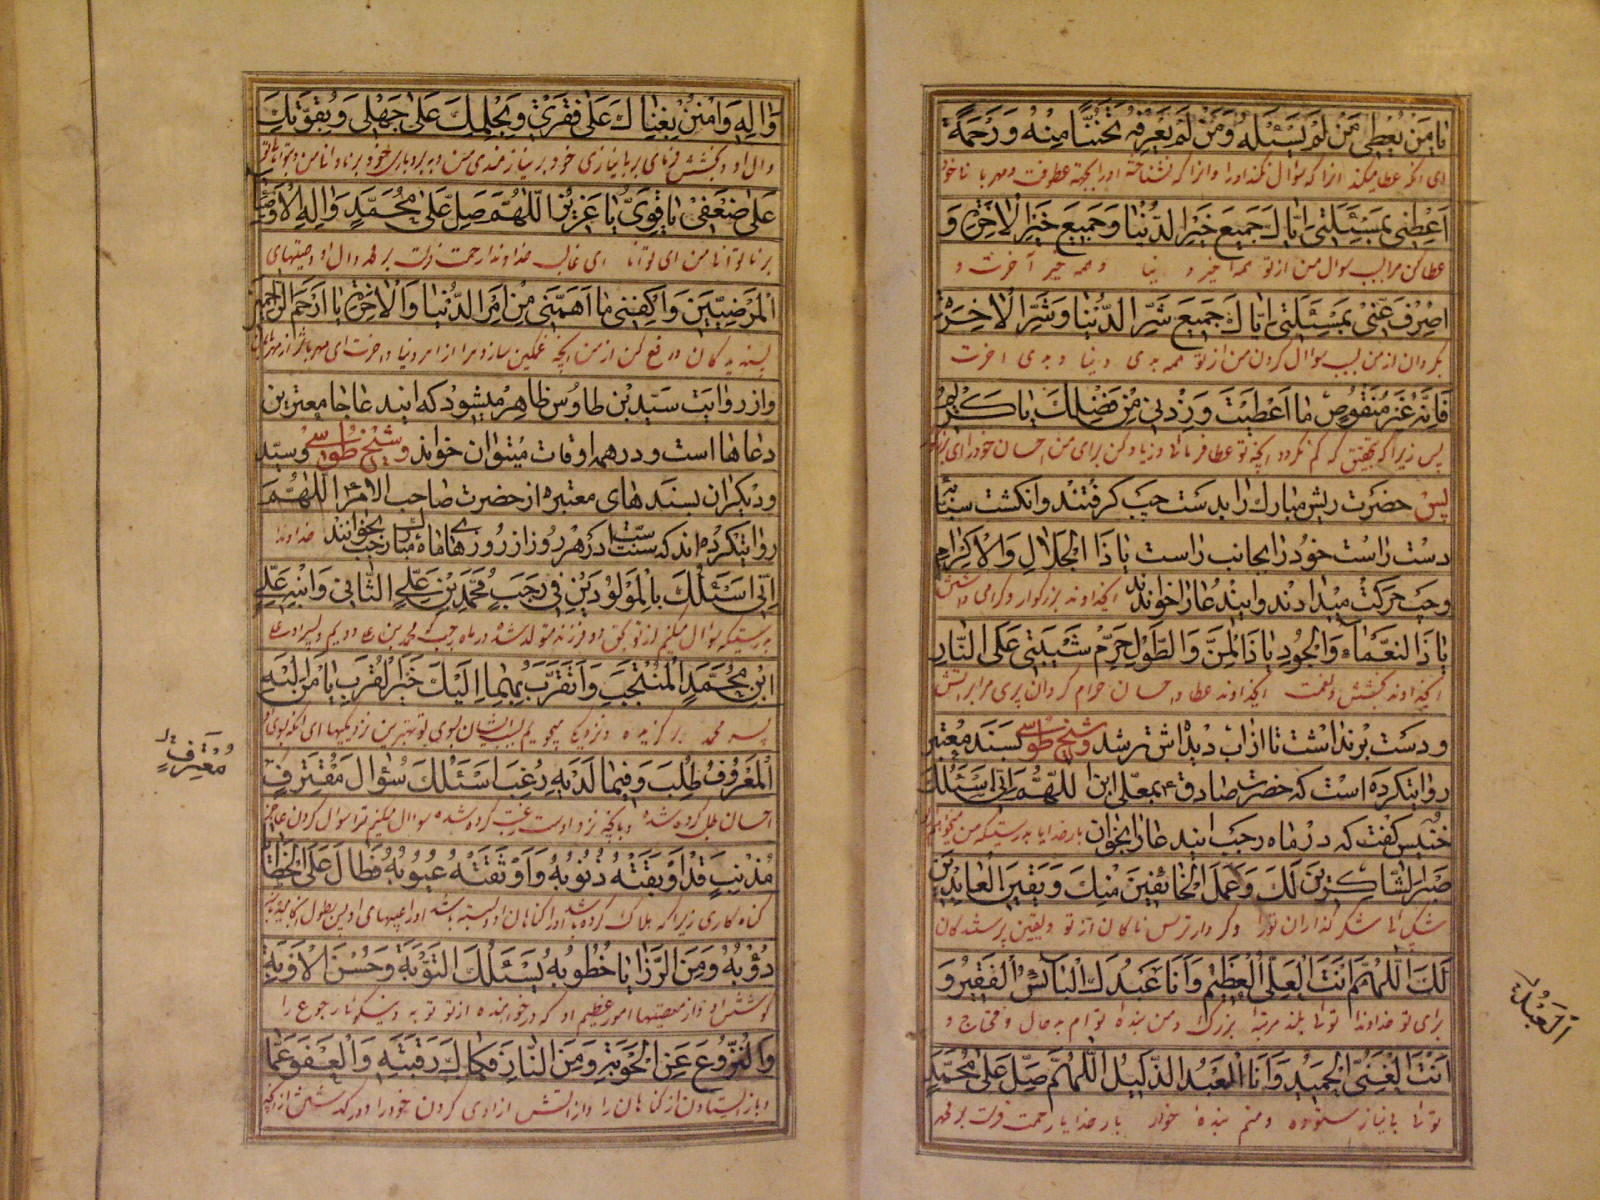 يا مَنْ يُعْطي مَنْ لَمْ يَسْئَلْهُ وَمَنْ لَمْ يَعْرِفْهُ تَحَنُّنًا مِنْهُ وَرَحْمَةً
ای آنکه عطا میکند آنرا که سؤال نکند او را و آنرا که نشناخته او را بجهة عطوفت و مهربا
اَعْطِني بِمَسْئَلَتي اِيّاكَ جَميعَ خَيْرِ الدُّنْيا وَجَميعَ خَيْرِ الْاخِرَةِ وَ
عطا کن مرا بسبب سؤال من از تو همه خیر دنیا و همه خیر آخرت و
اصْرِفْ عَنّي بِمَسْئَلَتي اِيّاكَ جَميعَ شَرِّ الدُّنْيا وَشَرِّ الْاخِرَةِ
بگردان از من بسبب سؤال کردن من از تو همه بدی دنیا و بدی آخرت
فَاِنَّهُ غَيْرُ مَنْقُوصٍ ما اَعْطَيْتَ وَزِدْني مِنْ فَضْلِكَ يا كَريمُ
پس زیرا که بتحقیق که کم نگردد آنچه تو عطا فرمائی و زیاد کن برای من احسان خود را ای
پس حضرت ریش مبارک را بدست چپ گرفتند وانکشت سبابه
دست راست خود را بجانب راست يا ذَا الْجَلالِ وَالْاِكْرامِ
وچپ حرکت میدادند واین دعا را خواندند ایخداوند بزرگوار و گرامی داشتن
يا ذَا النَّعْماءِ وَالْجُودِ يا ذَا الْمَنِّ وَالطَّوْلِ حَرِّمْ شَيْبَتي عَلَى النّارِ
ایخداوند بخشش و نعمت ایخداوند عطا و احسان حرام گردان پیری مرا بر آتش
ودست برنداشت تا از آب دیده اش تر شد وشیخ طوسی بسند معتبر
روایتکرده است که حضرت صادق ع بمعلی ابن اللّهُمَّ اِنّي اَسْئَلُكَ
خنیس گفت که در ماه رجب این دعا را بخوان بار خدایا بدرستیکه من میخواهم
صَبْرَ الشّاكِرينَ لَكَ وَعَمَلَ الْخائِفينَ مِنْكَ وَيَقينَ الْعابِدينَ
شکیبائی شکر گذاران تو را و کردار ترسناکان از تو و یقین پرستندگان
لَكَ اَللّهُمَّ اَنْتَ الْعَلِيُّ الْعَظيمُ وَاَنَا عَبْدُكَ الْبائِسُ الْفَقيرُ وَ
برای تو خداوندا توئی بلند مرتبه بزرگ و من بنده توام بد حال و محتاج و
اَنْتَ الْغَنِيُّ الْحَميدُ وَاَنَا الْعَبْدُ الذَّليلُ اَللّهُمَّ صَلِّ عَلى مُحَمَّدٍ
توئی بی نیاز ستوده و منم بنده خوار بار خدایا رحمت فرست بر محمد
اَلْعَبْدُ
وَالِهِ وَامْنُنْ بِغِناكَ عَلى فَقْري وَبِحِلْمِكَ عَلى جَهْلي وَبِقُوَّتِكَ
وال او و بخشش فرمای بر بی نیازی خود بر نیازمندی من و به بردباری خود بر نادانی من و بتوانائی
عَلى ضَعْفي يا قَوِيُّ يا عَزيزُ اَللّهُمَّ صَلِّ عَلى مُحَمَّدٍ وَالِهِ الْاَوْصِياءِ
بر ناتوانائی من ای توانا ای غالب خداوندا رحمت فرست بر محمد وال او وصیتهای
الْمَرْضِيّينَ وَاكْفِني ما اَهَمَّني مِنْ اَمْرِ الدُّنْيا وَالْاخِرَةِ يا اَرْحَمَ الرّاحِمينَ
پسندیدگان و دفع کن از من آنچه غمگین سازد مرا از امر دنیا و آخرت ای مهربانتر از
واز روایت سیّد بن طاوس ظاهر میشود که این دعا جامعترین
دعاها است و در همه اوقات میتوان خواند وشیخ طوسی وسیّد
ودیگران بسندهای معتبره از حضرت صاحب الامر ع اَللّهُمَّ
روایتکرده اند که سنت است در هر روز از روزهای ماه مبارک رجب بخوانند خداوندا
اِنّي اَسْئَلُكَ بِالْمَوْلُودَيْنِ في رَجَبٍ مُحَمَّدِ بْنِ عَلِيٍّ الثّاني وَابْنِهِ عَلِيِّ
بدرستیکه سؤال میکنم از تو بحق دو فرزند متولد شده در ماه رجب که محمد بن علی دویم و پسر او علی
ابْنِ مُحَمَّدٍ الْمُنْتَجَبِ وَاَتَقَرَّبُ بِهِما اِلَيْكَ خَيْرَ الْقُرَبِ يا مَنْ اِلَيْهِ
پسر محمد برگزیده و نزدیکی میجویم بسبب ایشان بسوی تو بهترین نزدیکیها ای آنکه بسوی او
الْمَعْرُوفُ طُلِبَ وَفيما لَدَيْهِ رُغِبَ اَسْئَلُكَ سُؤالَ مُقْتَرِفٍ
احسان طلب کرده شده و بآنچه نزد اوست رغبت کرده شده سؤال میکنم ترا سؤال کردن
مُذْنِبٍ قَدْ اَوْبَقَتْهُ ذُنُوبُهُ وَاَوْثَقَتْهُ عُيُوبُهُ فَطالَ عَلَى الْخَطايا
گناه کاری زیرا که هلاک کرده باشد او را گناهان او و بسته باشد او را عیبهای او پس بطول انجامیده
دُؤُبُهُ وَمِنَ الرَّزايا خُطُوبُهُ يَسْئَلُكَ التَّوْبَةَ وَحُسْنَ الْاَوْبَةِ
کوشش او و از مصیبتها امور عظیم او که درخواهنده از تو توبه و نیکوئی رجوع را
وَالنُّزُوعَ عَنِ الْحَوْبَةِ وَمِنَ النّارِ فَكاكَ رَقَبَتِهِ وَالْعَفْوَ عَمّا
و باز ایستادن از گناهان را و از آتش آزادی گردن خود را و درگذشتن از آنچه
مُعْتَرِفٍ